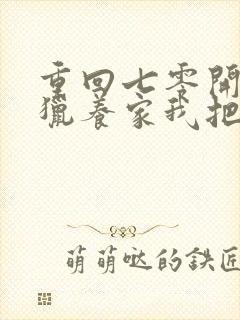 重回七零開
獵養家我把
萌萌噠的鉄匠